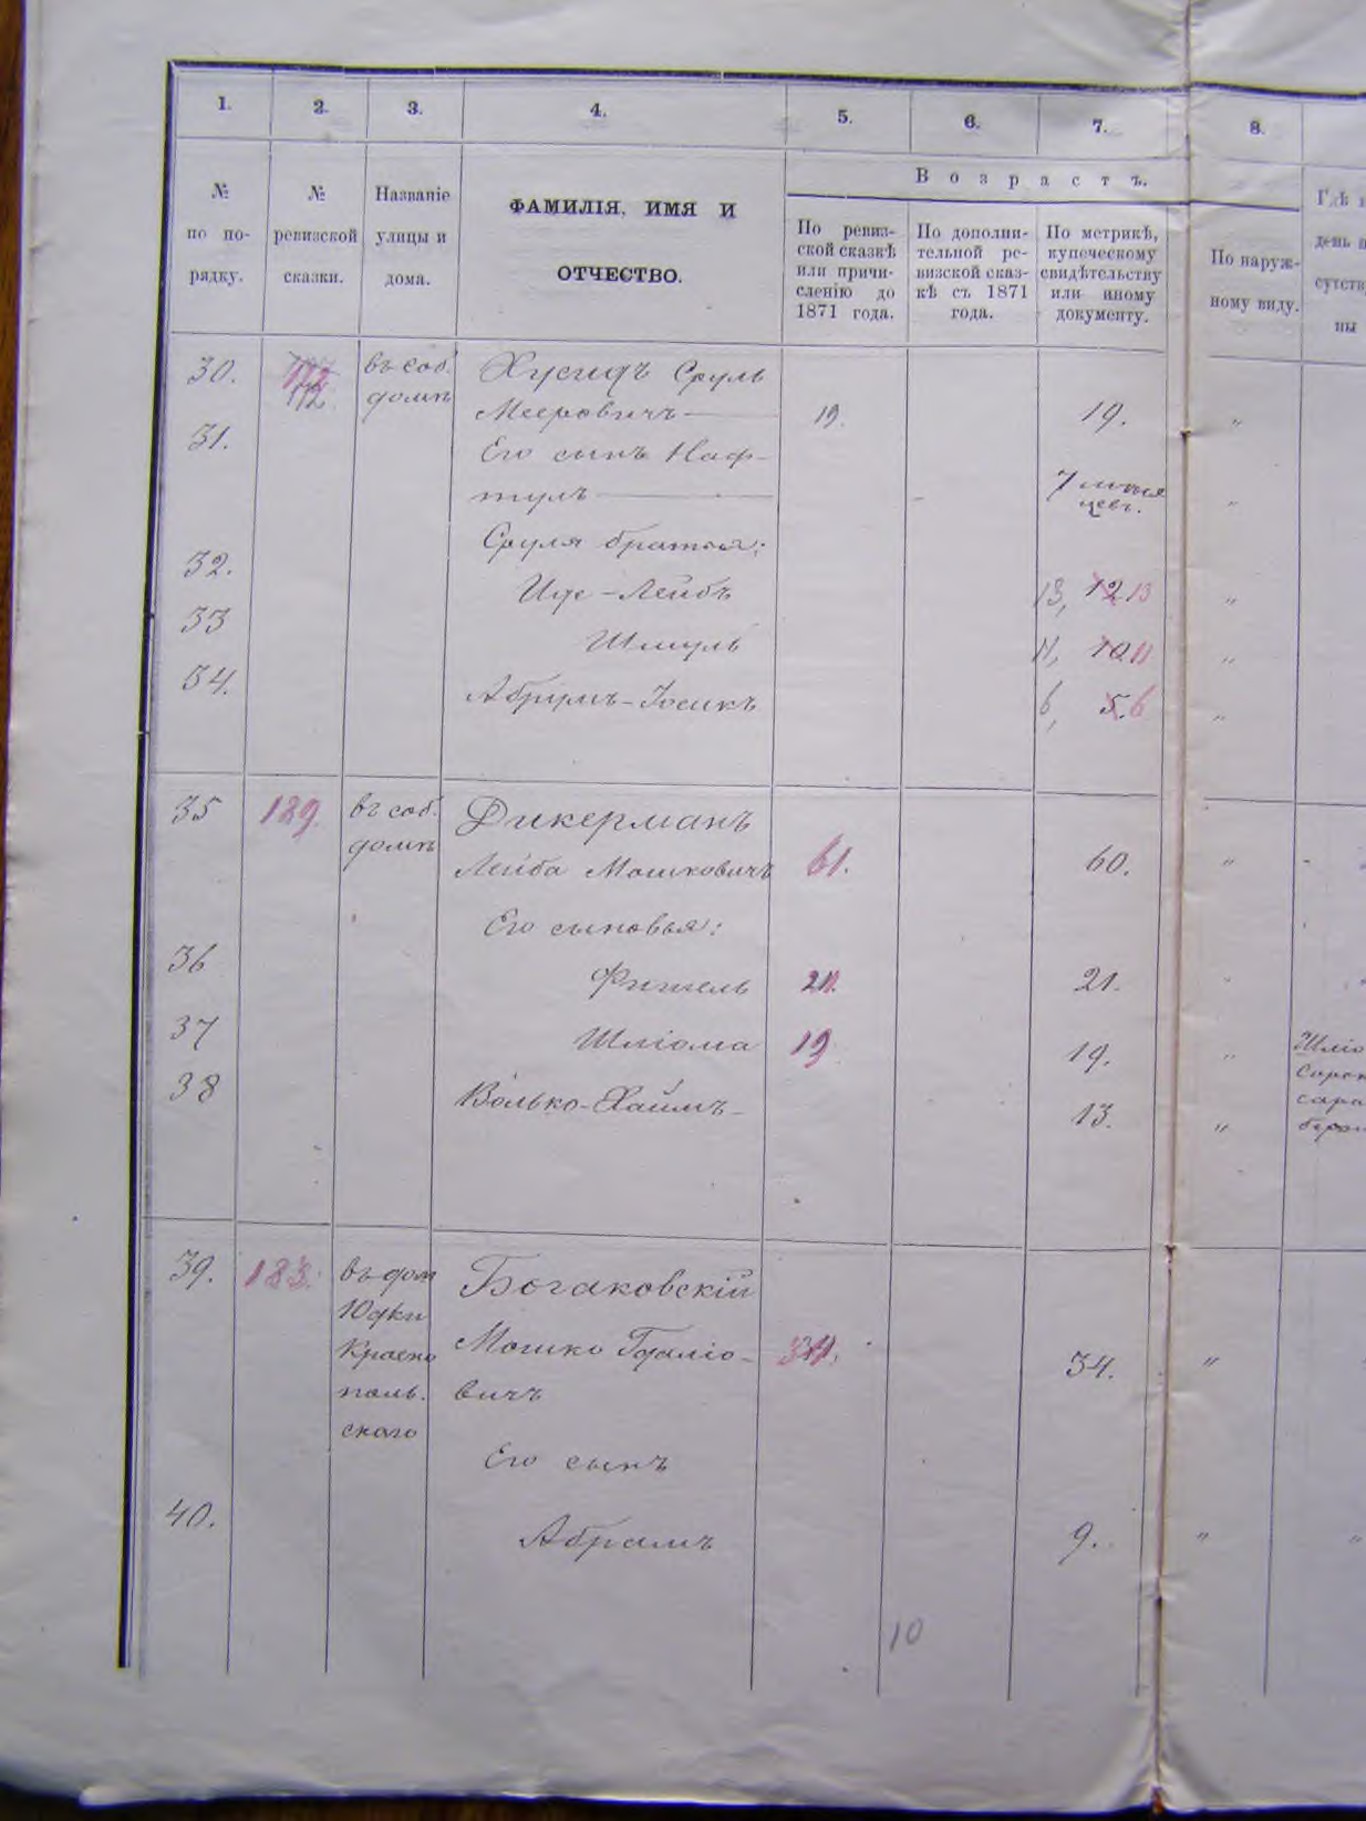 1. 2. 3. 4. 5. 6. 7. 8.
№ по по-рядку.
№ ревизской сказки.
Названіе улицы и дома.
ФАМИЛІЯ, ИМЯ И
ОТЧЕСТВО.
Возрастъ.
По ревиз-
ской сказкѣ
или причи-
сленію до
1871 года.
По дополни-
тельной ре-
визской сказ-
кѣ съ 1871
года.
По метрикѣ,
купеческому
свидѣтельству
или иному
документу.
По наруж-
ному виду.
Гдѣ
день
сутств
ны
30. 172 въ соб. Хусидъ Сруль
домѣ Мееровичъ 19. 19. "
31. Его сынъ Наф-
тулъ 7 мѣся
цевъ. "
Сруля братья:
32. Иде-Лейбъ 13, 12 13 "
33 Шмуль 11, 10 11 "
34. Абрумъ-Іосикъ 6, 5. 6 "
35 189. въ соб. Дикерманъ
домѣ Лейба Мошковичъ 61. 60. "
Его сыновья:
36 Фишель 21. 21.
37 Шліома 19 19. " Шліо
38 Волько-Хаимъ 13. "
39. 183. въ дом Богаковскій
Юдки
Красно Мошко Гдаліо- 34. 34. "
поль. вичъ
скаго
Его сынъ
40. Абрамъ 9. " "
10